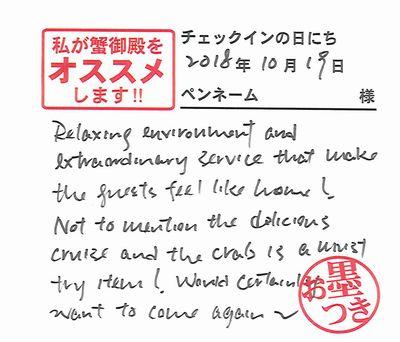 私が蟹御殿を
オススメ
します!!
チェックインの日にち
2018年10月19日
ペンネーム 様
Relaxing environment and
extraordinary service that make
the guests feel like home!
Not to mention the delicious
cruize and the crab is a must
try item! World certainley
want to come again~
お墨つき